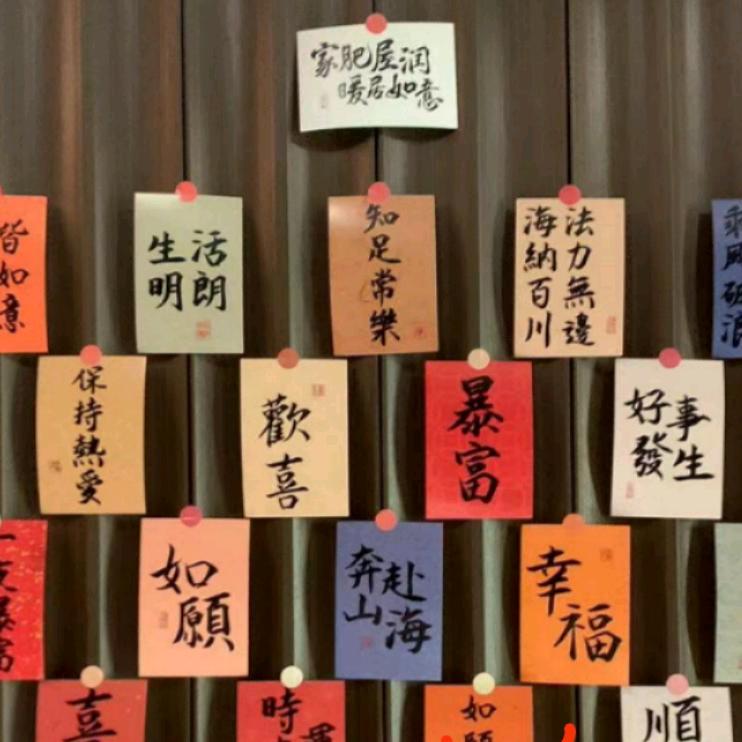 家肥屋润
暖居如意
皆如意
生活
明朗
知足常樂
法力無邊
海納百川
保持熱愛
歡喜
暴富
好事
發生
如願
奔赴
山海
幸福
喜
時
如願
順